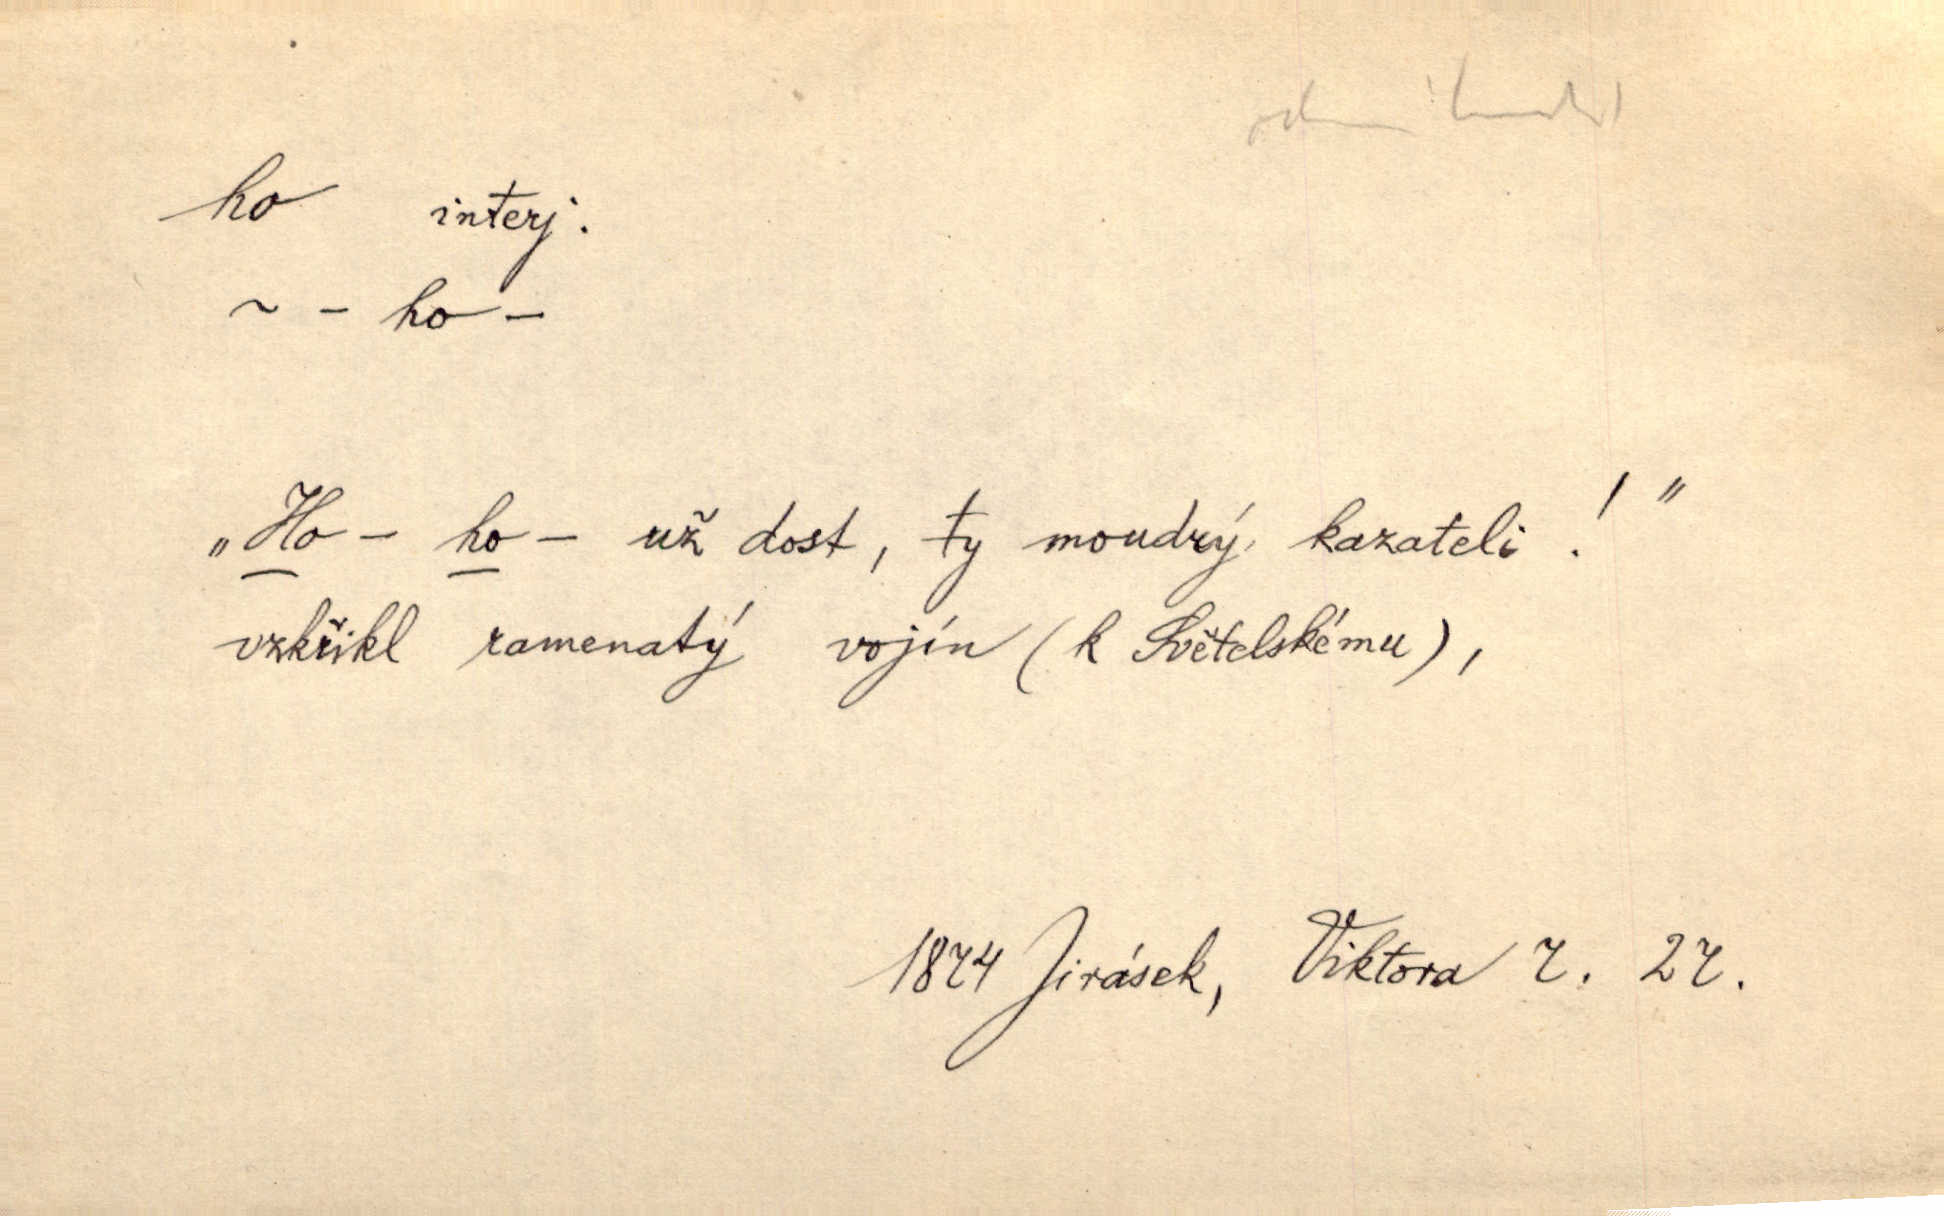 ho interj.
~ - ho -
„Ho - ho - už dost, ty moudrý kazateli!"
vzkřikl ramenatý vojín (k Světelskému),
1874 Jirásek, Viktora 7. 27.